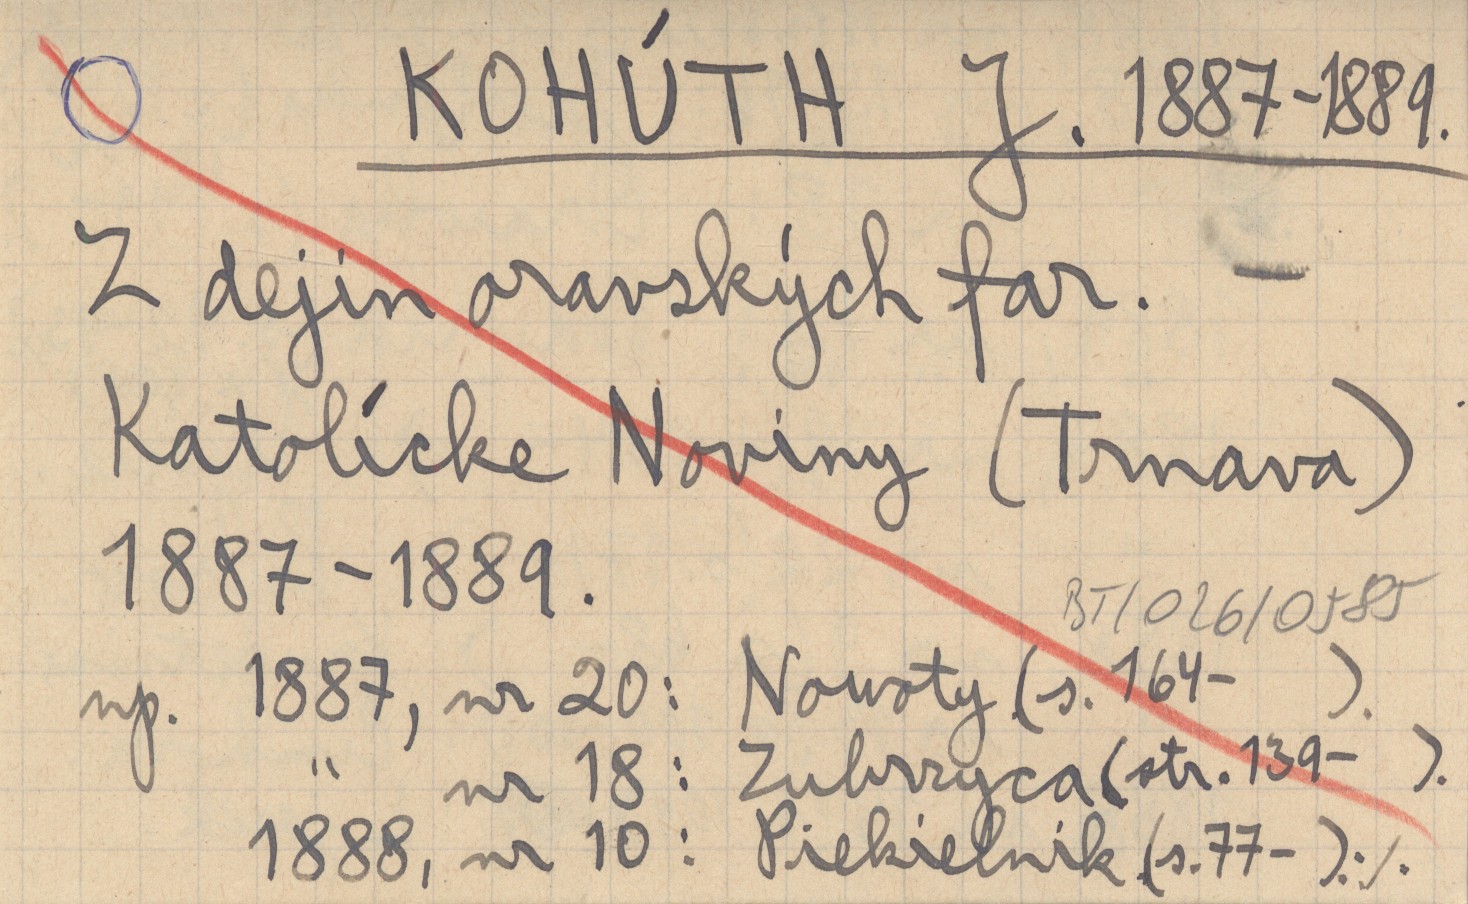 KOHÚTH J. 1887-1889.
Z dejín oravských far.
Katolícke Noviny (Trnava)
1887-1889.
BT/026/0585
np. 1887, nr 20: Nowoty (s. 164- ).
" nr 18: Zubrzyca (str. 139- ).
1888, nr 10: Piekielnik (s. 77- ). ./.